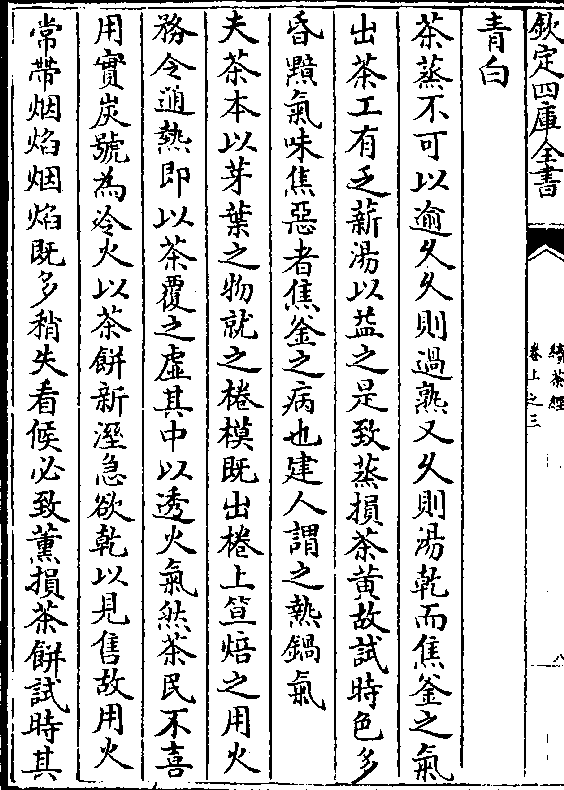 欽定四庫全書
續茶經
卷上之三
八
青白
茶蒸不可以逾久久則過熟又久則湯乾而焦釜之氣
出茶工有乏薪湯以益之是致蒸損茶黄故試時色多
昏黯氣味焦惡者焦釜之病也建人謂之熱鍋氣
夫茶本以芽葉之物就之棬模既出棬上笪焙之用火
務令通熱即以茶覆之虛其中以透火氣然茶民不喜
用實炭號為冷火以茶餅新溼急欲乾以見售故用火
常帶烟焰烟焰既多稍失看候必致薰損茶餅試時其